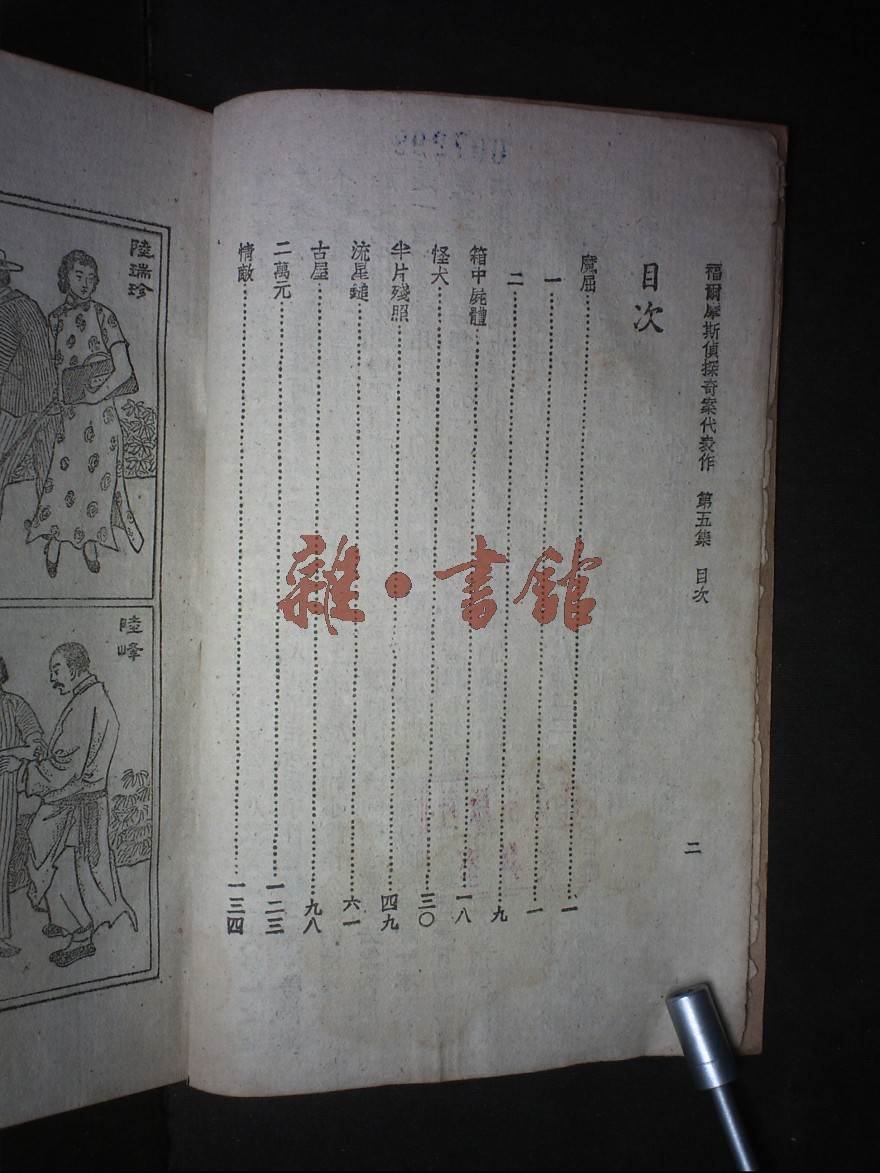 福爾摩斯偵探奇案代表作 第五集 目次
二
目次
魔屈 一
一 一
二 九
箱中屍體 一八
怪犬 三〇
半片殘照 四九
流星鎚 六一
古屋 九八
二萬元 一二三
情敵 一三四
陸瑞珍
陸峰
雜·書館